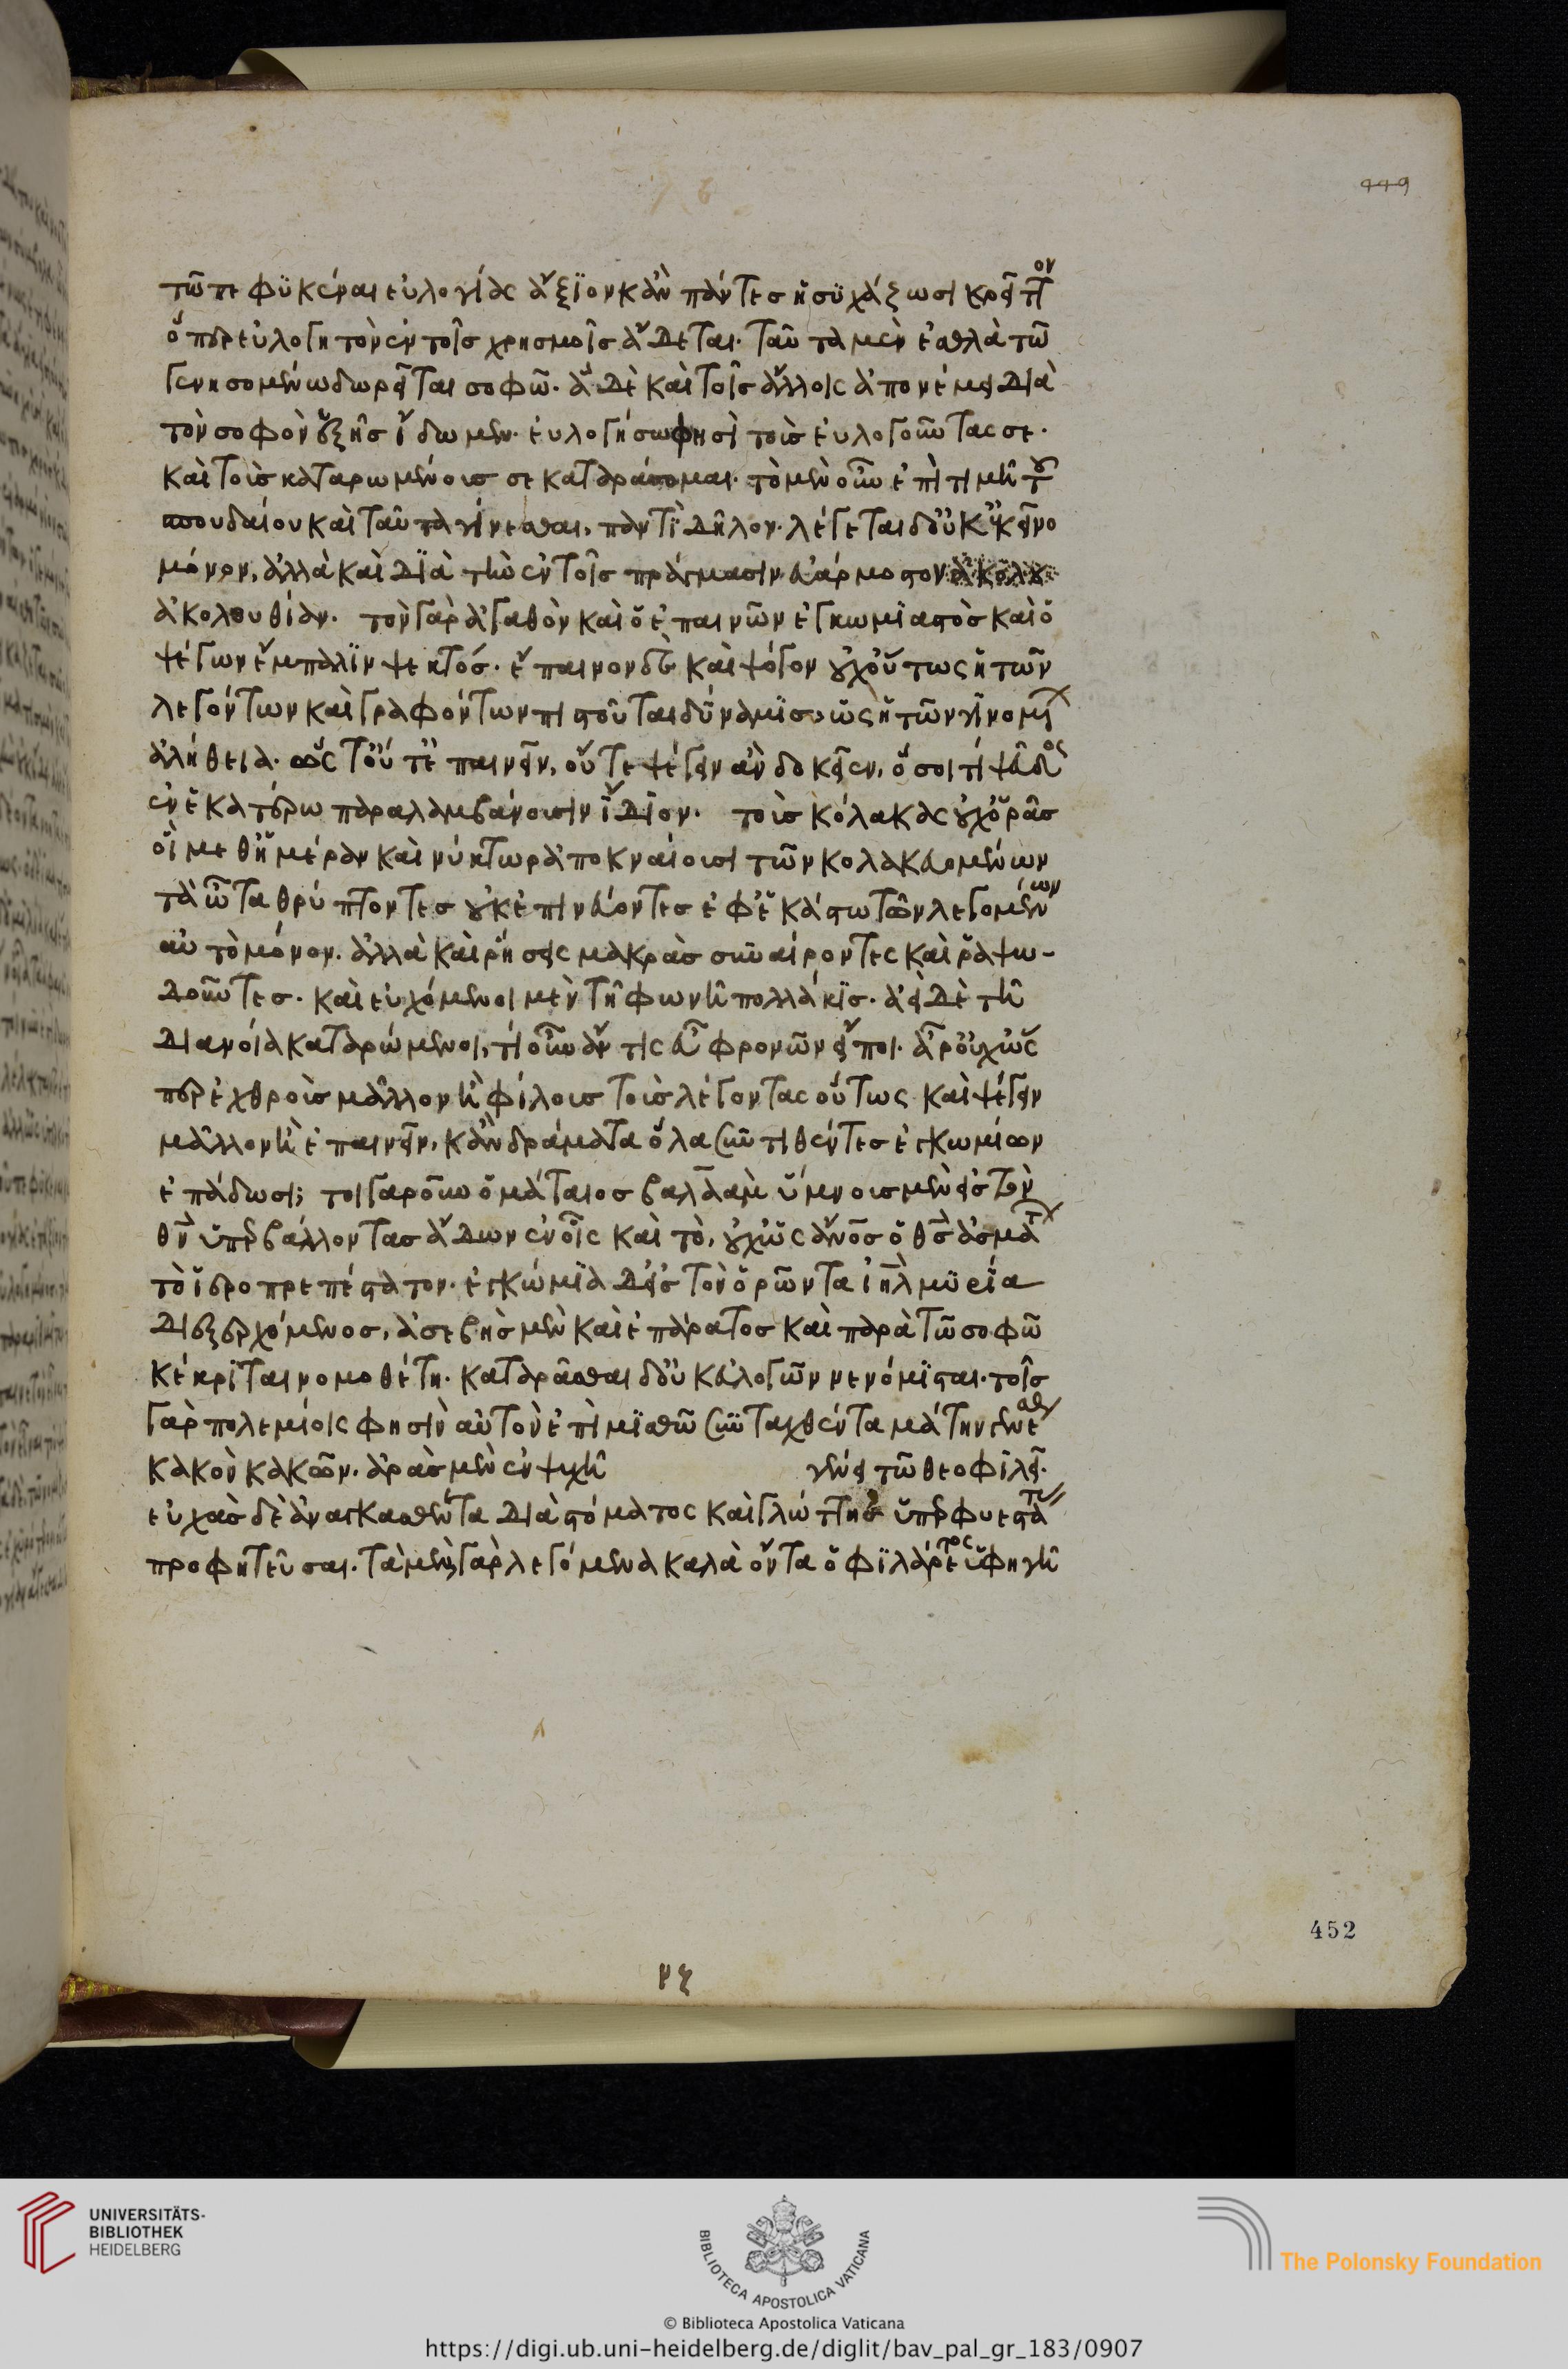 τῶ πεφϋκέναι εὐλογίας ἄξϊον κἂν πάντες ἡσϋχάζωσι κρεῖττον
ὅπερ εὐλογητὸν ἐν τοῖς χρησμοῖς ἄδεται. ταῦτα μὲν ἔαθλα τῶ
γενησομένω δωρεῖται σοφῶ. ἃ δὲ καὶ τοῖς ἄλλοις ἀπονέμει διὰ
τὸν σοφὸν ἑξῆς ἴδωμεν. εὐλογήσω φησὶ τοὺς εὐλογοῦντας σε.
καὶ τοὺς καταρωμένους σε καταράσομαι. τὸ μὲν οὖν ἐπὶ τιμῆ τοῦ
σπουδαίου καὶ ταῦτα γίνεσθαι, παντὶ δῆλον. λέγεται δ' οὐκ ἐκεῖνο
μόνον, ἀλλὰ καὶ διὰ τὴν ἐν τοῖς πράγμασιν εὐάρμοστον
ἀκολουθίαν. τὸν γὰρ ἀγαθὸν καὶ ὁ ἐπαινῶν ἐγκωμιαστὸς καὶ ὁ
ψέγων ἔμπαλϊν ψεκτός. ἔπαινον δὲ καὶ ψόγον οὐχ οὕτως ἡ τῶν
λεγόντων καὶ γραφόντων πιστοῦται δύναμϊς ὡς ἡ τῶν γινομένων
ἀλήθεια. ὥστ' οὔτ' ἐπαινεῖν, οὔτε ψέγειν ἂν δοκεῖεν, ὅσοι τὶ ψεῦδος
ἐν ἑκατέρω παραλαμβάνουσιν ἴδϊον. τοὺς κόλακας οὐχ ὁρᾶς
οἳ μεθ' ἡμέραν καὶ νύκτωρ ἀποκναίουσι τῶν κολακευομένων
τὰ ὦτα θρύπτοντες οὐκ ἐπινεύοντες ἐφ' ἑκάστω τῶν λεγομένων
αὐτὸ μόνον. ἀλλὰ καὶ ῥήσεις μακρὰς συναίροντες καὶ ῥαψω-
δοῦντες. καὶ εὐχόμενοι μὲν τῆ φωνῆ πολλάκις. ἀεὶ δὲ τῆ
διανοία καταρώμενοι, τί οὖν ἄν τις εὖ φρονῶν εἴποι. ἆρ' οὐχ ὡς
περ ἐχθροὺς μᾶλλον ἢ φίλους τοὺς λέγοντας οὕτως καὶ ψέγειν
μᾶλλον ἢ ἐπαινεῖν, κἂν δράματα ὅλα συντιθέντες ἐγκωμίων
ἐπάδωσι; τοιγαροῦν ὁ μάταιος βαλαὰμ ὕμνους μὲν εἰς τὸν
θν ὑπερβάλλοντας ἄδων ἐν οἷς καὶ τὸ, οὐχ ὡς ἄνος ὁ θς ἀσμάτων
τὸ ἱεροπρεπέστατον. ἐγκώμϊα δ' εἰς τὸν ὁρῶντα ιηλ μϋρία
διεξερχόμενος, ἀσεβὴς μὲν καὶ ἐπάρατος καὶ παρὰ τῶ σοφῶ
κέκρϊται νομοθέτη. καταρᾶσθαι δ' οὐκ εὐλογῶν νενόμϊσται. τοῖς
γὰρ πολεμίοις φησὶν αὐτὸν ἐπὶ μϊσθῶ συνταχθέντα μάτην γενέσθαι
κακὸν κακῶν. ἀρὰς μὲν ἐν ψυχῆ γένει τῶ θεοφιλεῖ.
εὐχὰς δὲ ἀναγκασθέντα διὰ στόματος καὶ γλώττης ὑπερφυεστάτας
προφητεῦσαι. τὰ μὲν γὰρ λεγόμενα καλὰ ὄντα ὁ φϊλάρετος ὑφηγεῖ
449
452
UNIVERSITÄTS-
BIBLIOTHEK
HEIDELBERG
BIBLIOTECA APOSTOLICA VATICANA
The Polonsky Foundation
© Biblioteca Apostolica Vaticana
https://digi.ub.uni-heidelberg.de/diglit/bav_pal_gr_183/0907